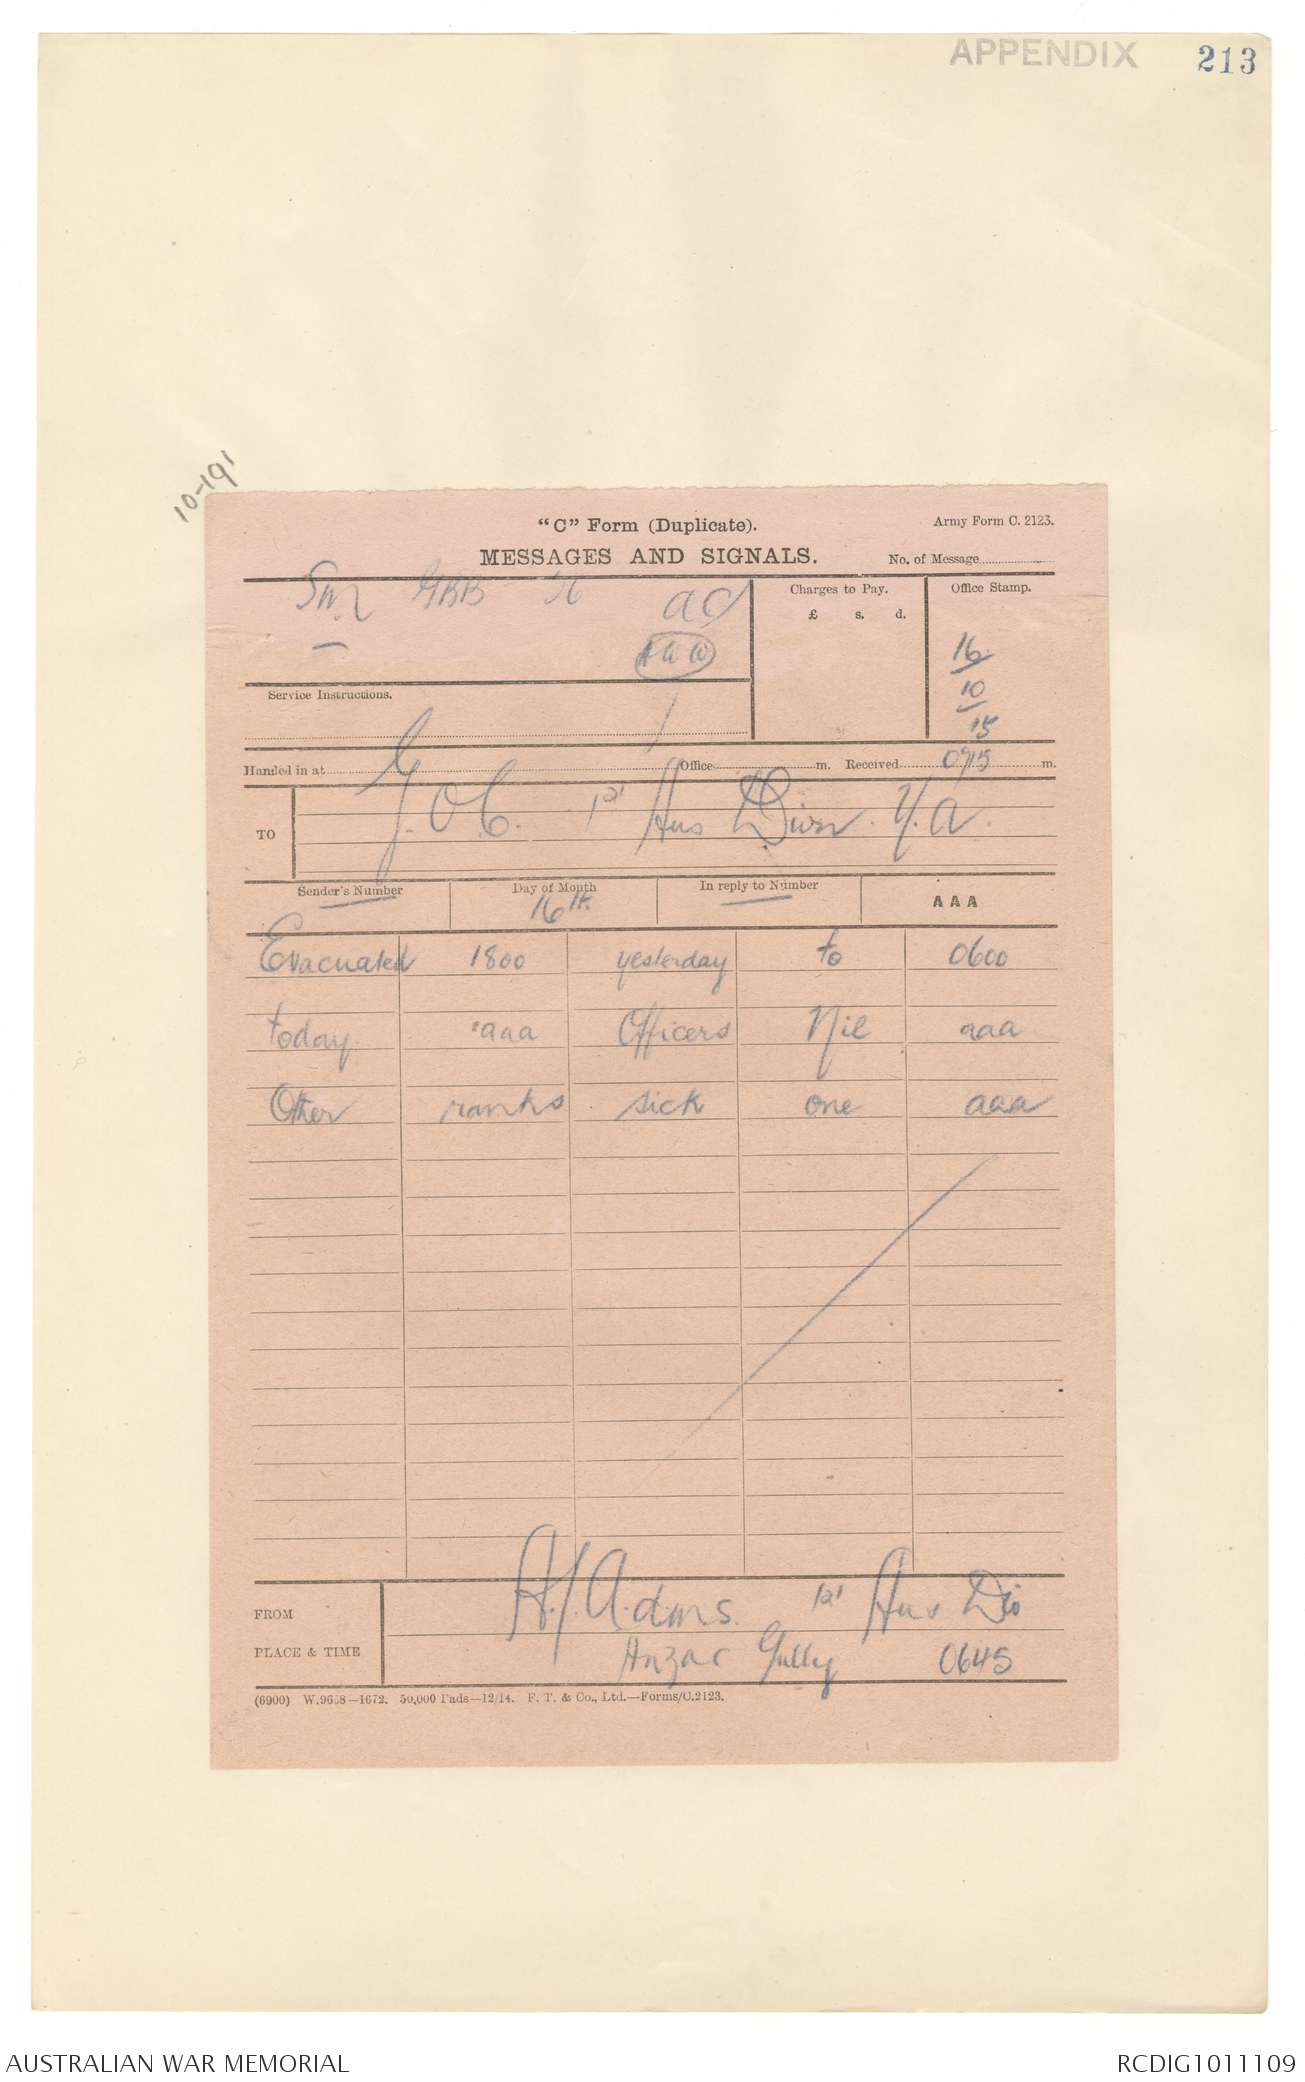 APPENDIX 213
10-191
"C" Form (Duplicate). Army Form C. 2123.
MESSAGES AND SIGNALS. No. of Message
GBB
Charges to Pay.
£ s. d.
Office Stamp.
16
10
15
Service Instructions.
Handed in at Office m. Received 0715 m.
TO G.O.C. 1st Aus Divn.
Sender's Number Day of Month In reply to Number AAA
16th
Evacuated 1800 yesterday to 0600
today aaa Officers Nil aaa
Other ranks sick one aaa
FROM A.J.A.d.m.s. 1st Aus Div
PLACE & TIME Anzac Gully 0645
(6900) W.9658-1672. 50,000 Pads-12/14. F. T. & Co., Ltd.-Forms/C.2123.
AUSTRALIAN WAR MEMORIAL RCDIG1011109